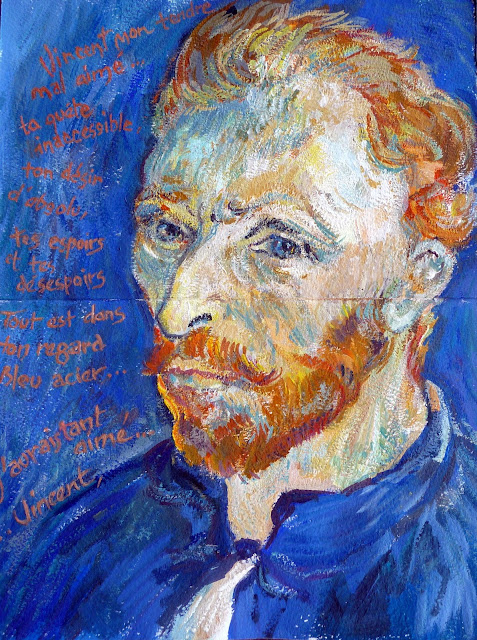 Vincent mon tendre
mal aimé...
ta quête
inaccessible,
ton désir
d'absolu,
tes espoirs
et tes
désespoirs
Tout est dans
ton regard
Bleu acier...
J'aurais tant
aimé...
..Vincent,